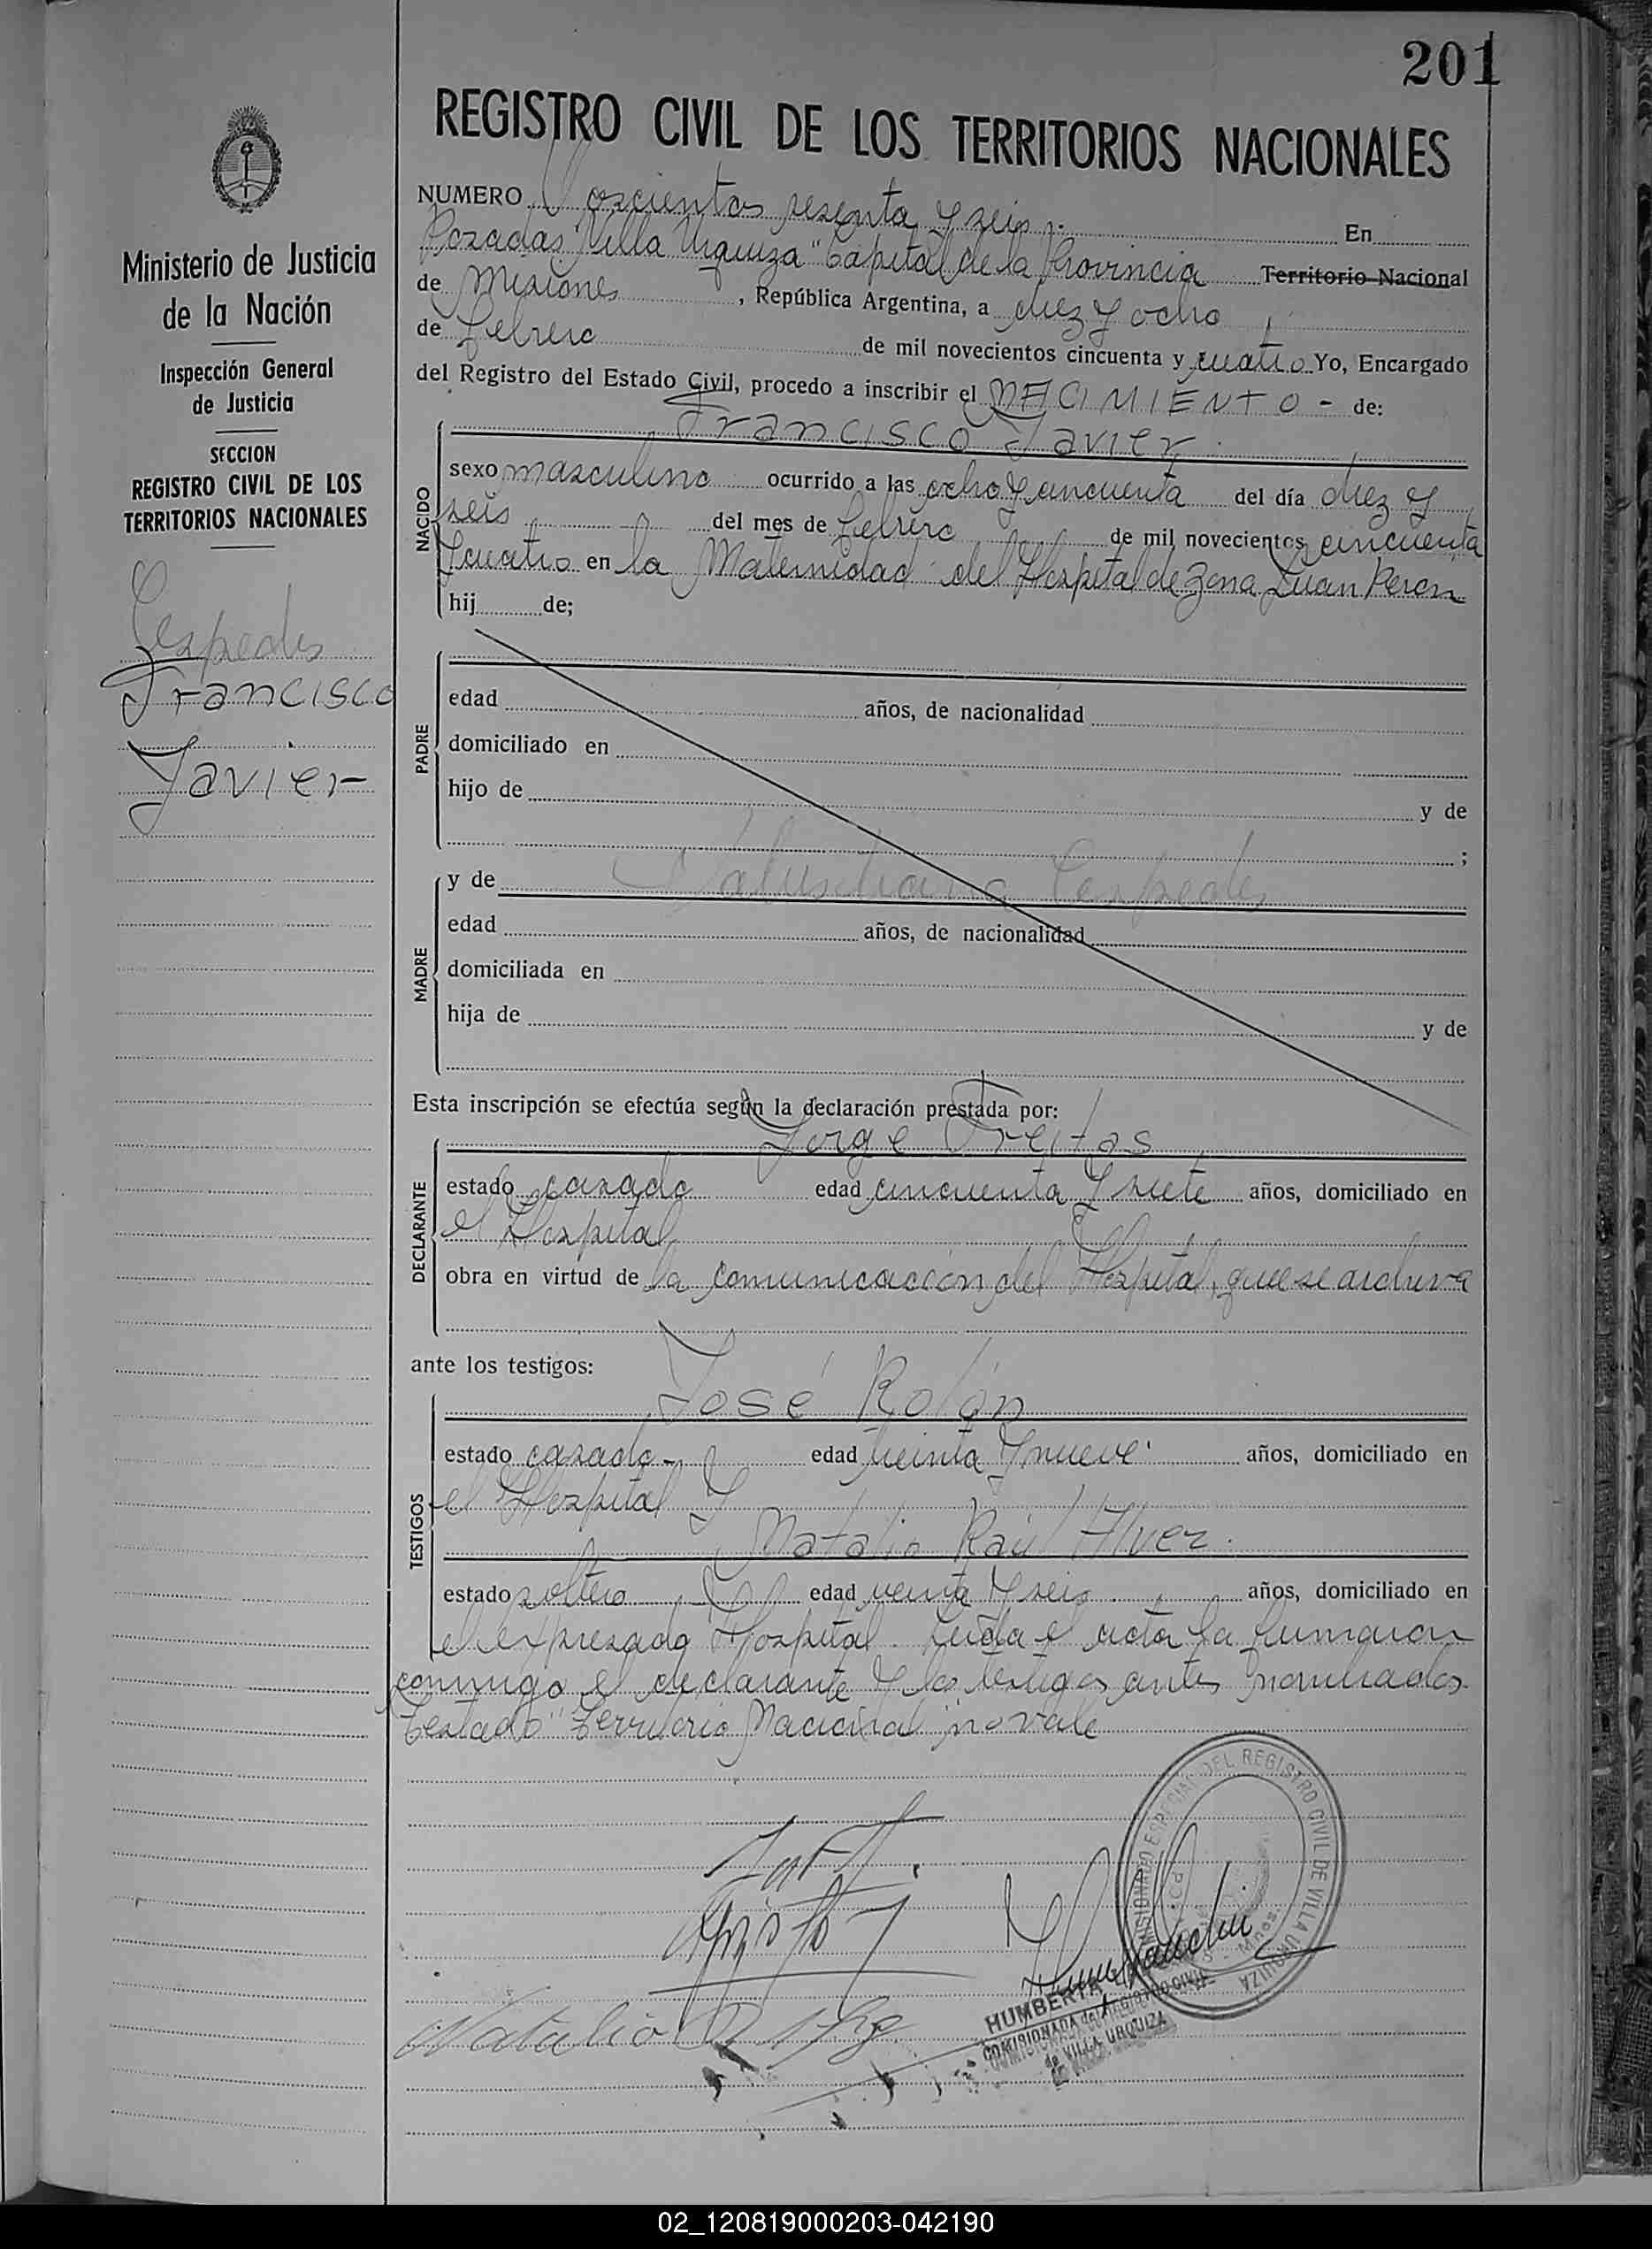 201
REGISTRO CIVIL DE LOS TERRITORIOS NACIONALES
Ministerio de Justicia
de la Nación
Inspección General
de Justicia
SECCION
REGISTRO CIVIL DE LOS
TERRITORIOS NACIONALES
Cespedes
Francisco
Javier
NUMERO Doscientos sesenta y seis. En
Posadas "Villa Urquiza" Capital de la Provincia Territorio Nacional
de Misiones, República Argentina, a diez y ocho
de febrero de mil novecientos cincuenta y cuatro Yo, Encargado
del Registro del Estado Civil, procedo a inscribir el NACIMIENTO - de:
NACIDO
Francisco Javier
sexo masculino ocurrido a las ocho y cincuenta del día diez y
seis del mes de febrero de mil novecientos cincuenta
y cuatro en la Maternidad del Hospital de Zona Juan Peron
hij de;
PADRE
edad años, de nacionalidad
domiciliado en
hijo de y de
;
MADRE
y de Salustiana Cespedes
edad años, de nacionalidad
domiciliada en
hija de y de
Esta inscripción se efectúa según la declaración prestada por:
DECLARANTE
Jorge Freitas
estado casado edad cincuenta y siete años, domiciliado en
el Hospital
obra en virtud de la comunicación del Hospital, que se archiva
ante los testigos:
TESTIGOS
José Rolón
estado casado - edad treinta y nueve años, domiciliado en
el Hospital y
Natalio Raúl Alvez.
estado soltero edad veinte y seis años, domiciliado en
el expresado Hospital. Leida el acta la firmaron
conmigo el declarante y los testigos antes nombrados.
Testado "Territorio Nacional" no vale
Natalio R
COMISIONADO ESPECIAL DEL REGISTRO CIVIL DE VILLA URQUIZA
HUMBERTA
COMISIONADA del REGISTRO CIVIL
de VILLA URQUIZA
02_120819000203-042190